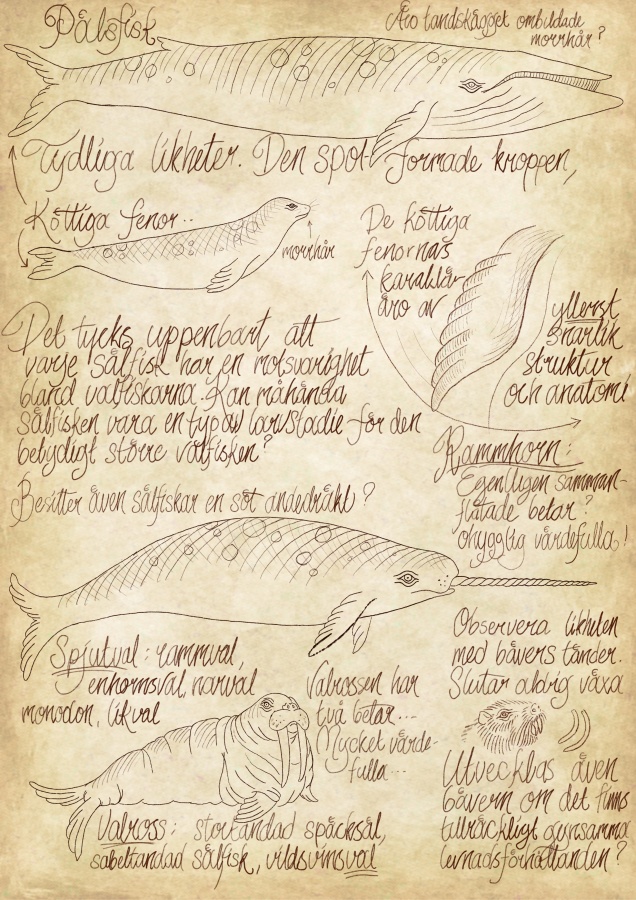 Pälsfisk
Äro landskägget ombildade
morrhår?
Tydliga likheter. Den spol-formade kroppen,
Köttiga fenor..
morrhår
De köttiga
fenornas
karaktär
äro av
ytterst
snarlik
struktur
och anatomi
Det tycks uppenbart, att
varje sälfisk har en motsvarighet
bland valfiskarna. Kan måhända
sälfisken vara en typ av larvstadie för den
betydligt större valfisken?
Rammhorn:
Egentligen samman-
flätade betar?
ohygglig värdefulla!
Besitter även sälfiskar en söt andedräkt?
Observera likheten
med bäverns tänder.
Slutar aldrig växa
Spjutval: rammval,
enhornsval, narval
monodon, likval
Valrossen har
två betar...
Mycket värde-
fulla...
Utvecklas även
bävern om det finns
tillräckligt gynsamma
levnadsförhållanden?
Valross: stortandad späcksäl,
sabeltandad sälfisk, vildsvinsval